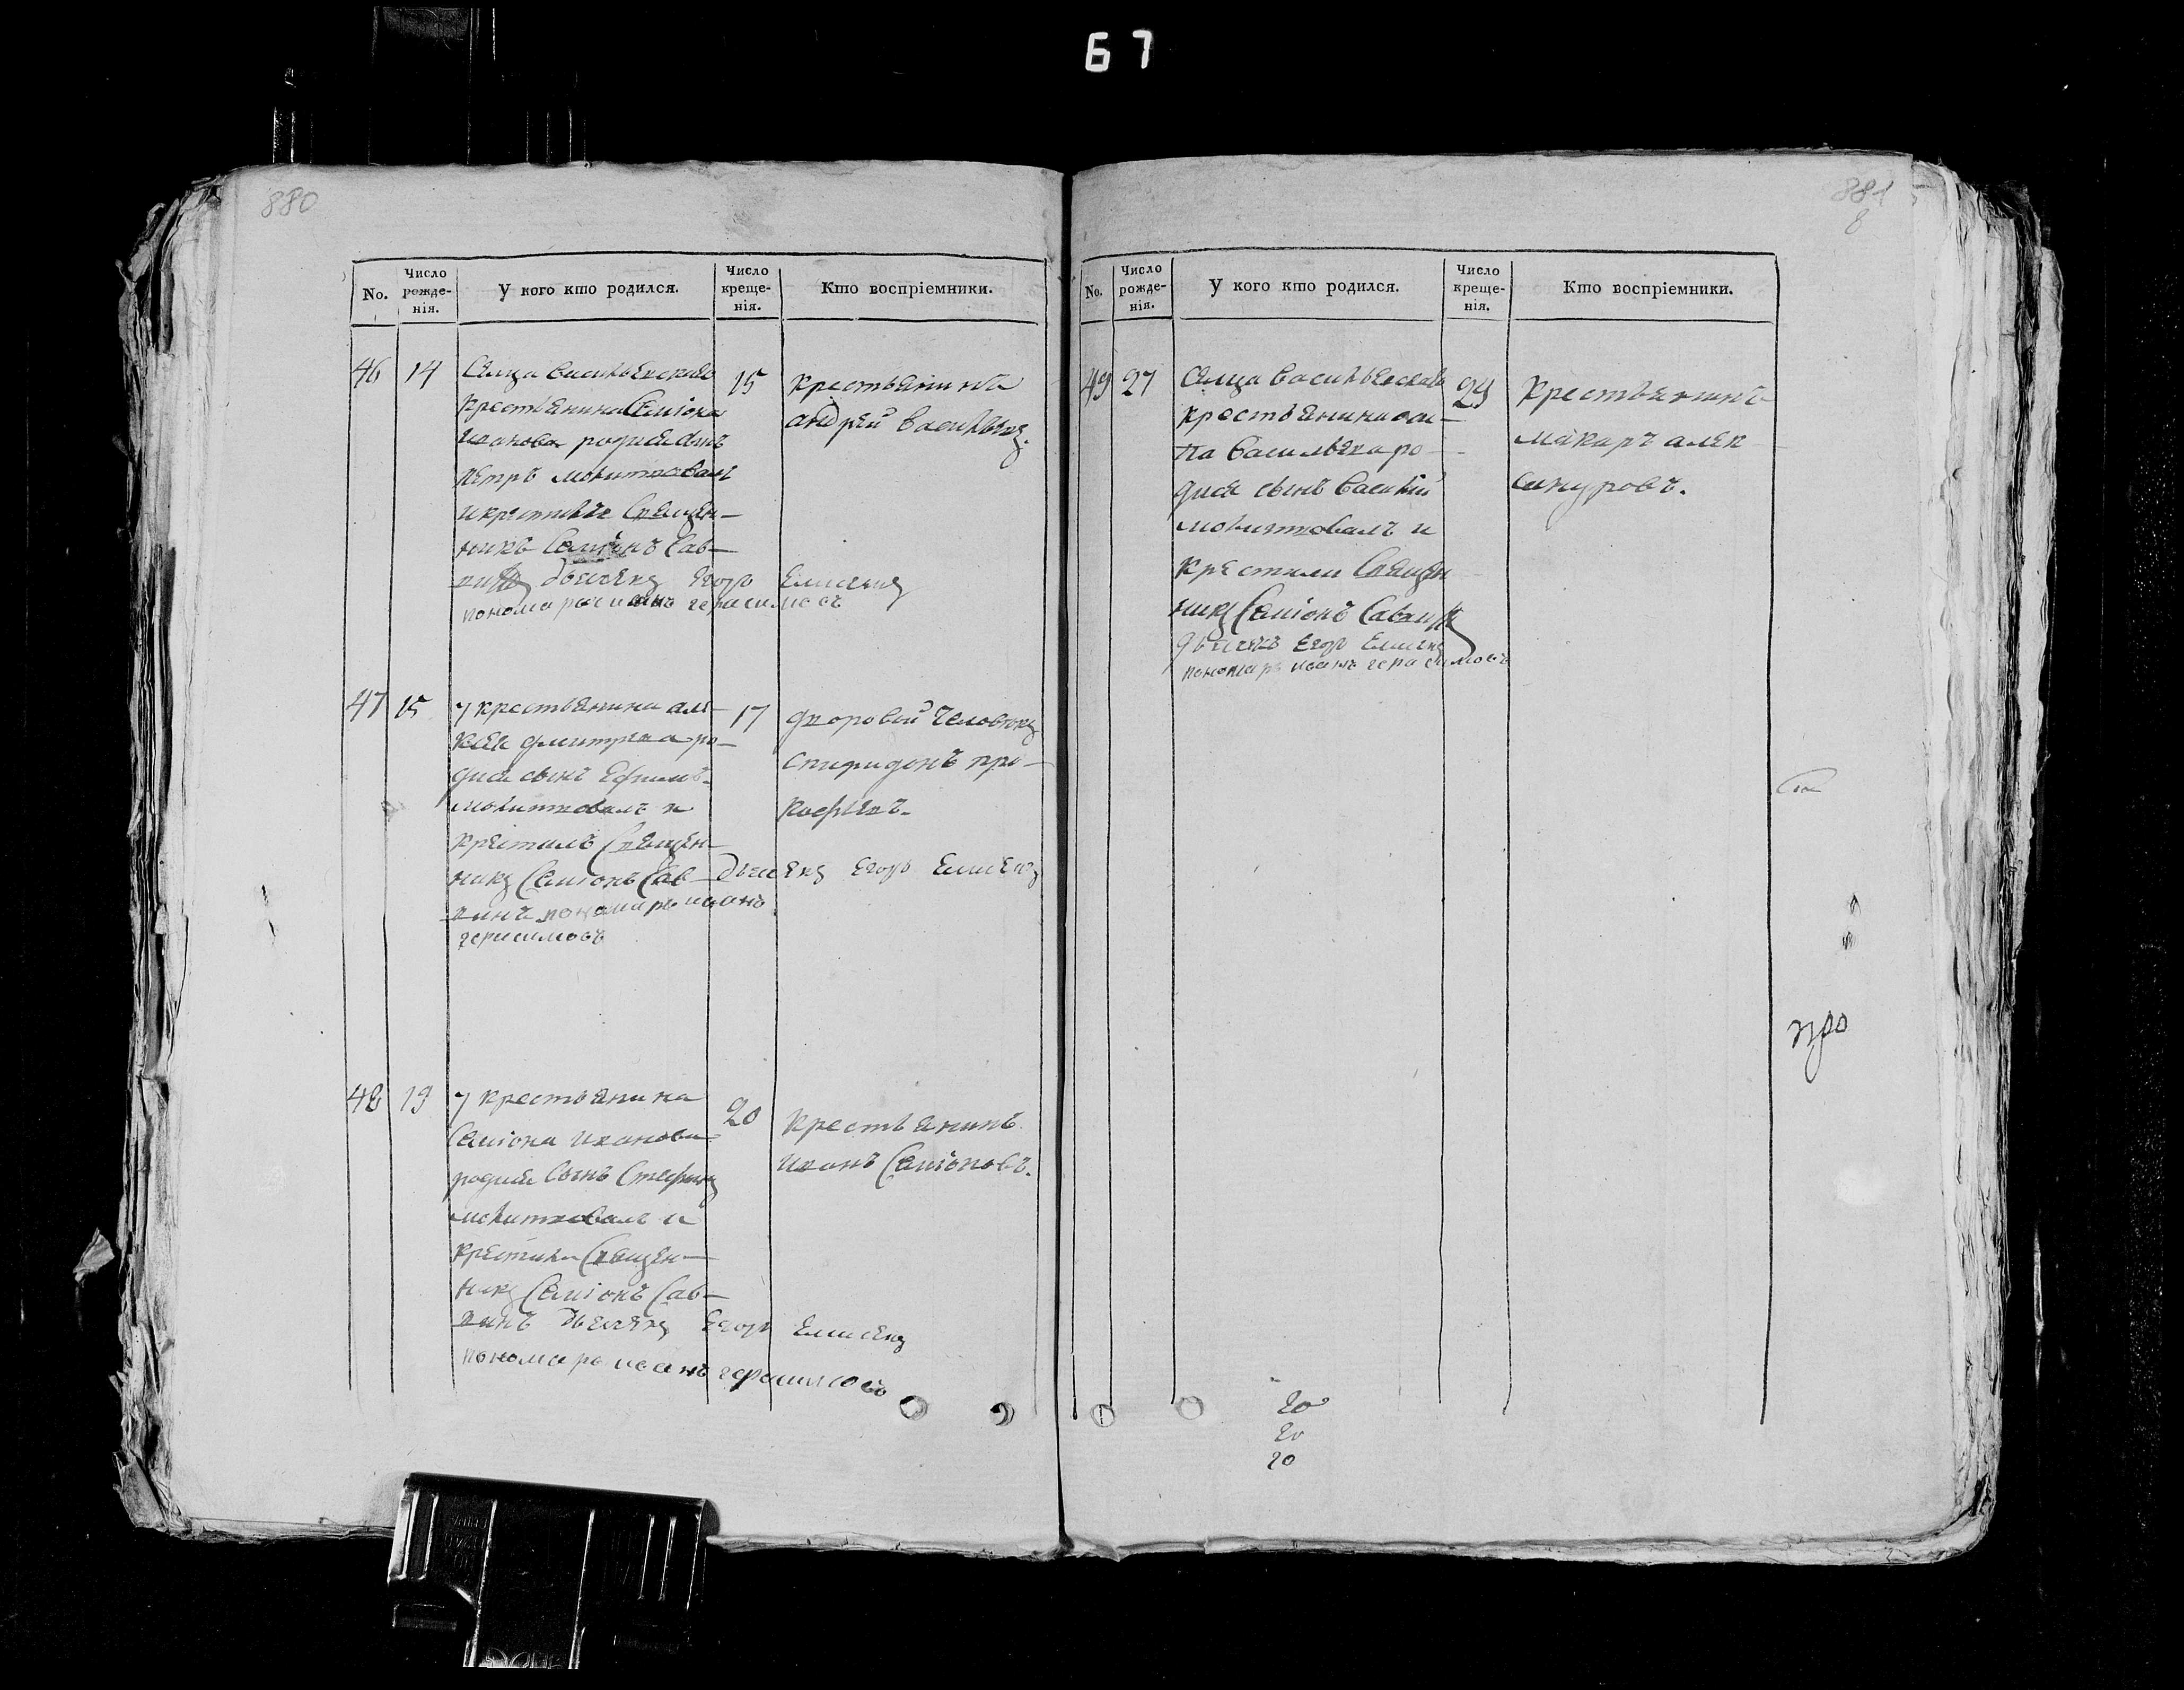 67
880
No.
Число рожде-нія.
У кого кто родился.
Число креще-нія.
Кто воспріемники.
46 14
Селца васильевскаго
крестьянина Семіона
Иванова родися сынъ
петръ молитвовалъ
и крестилъ Священ-
никъ Семіонъ Сав-
винъ дьячекъ Егоръ Елисеевъ
пономарь иванъ герасимовъ
15
крестьянинъ
андрей васильевъ.
47 15
у крестьянина але-
ксея дмитриева ро-
дися сынъ Ефимъ
молитвовалъ и
крестилъ Священ-
никъ Семіонъ Сав- дьячекъ Егоръ Елисеевъ
винъ пономарь иванъ
герасимовъ
17
дворовой человекъ
Спиридонъ про-
кофьевъ.
48 19
у крестьянина
Семіона иванова
родися Сынъ Стефанъ
молитвовалъ и
крестили Священ-
никъ Семіонъ Сав-
винъ дьячекъ Егоръ Елисеевъ
пономарь иванъ герасимовъ
20
крестьянинъ
иванъ Семіоновъ.
881
8
No.
Число рожде-нія.
У кого кто родился.
Число креще-нія.
Кто воспріемники.
49 27
Селца васильевскаго
крестьянина оси-
па васильева ро-
дися сынъ василій
молитвовалъ и
крестили Священ
никъ Семіонъ Саввинъ
дьячекъ Егоръ Елисеевъ
пономарь иванъ герасимовъ
29
крестьянинъ
макаръ алек
сандровъ.
про
20
20
20